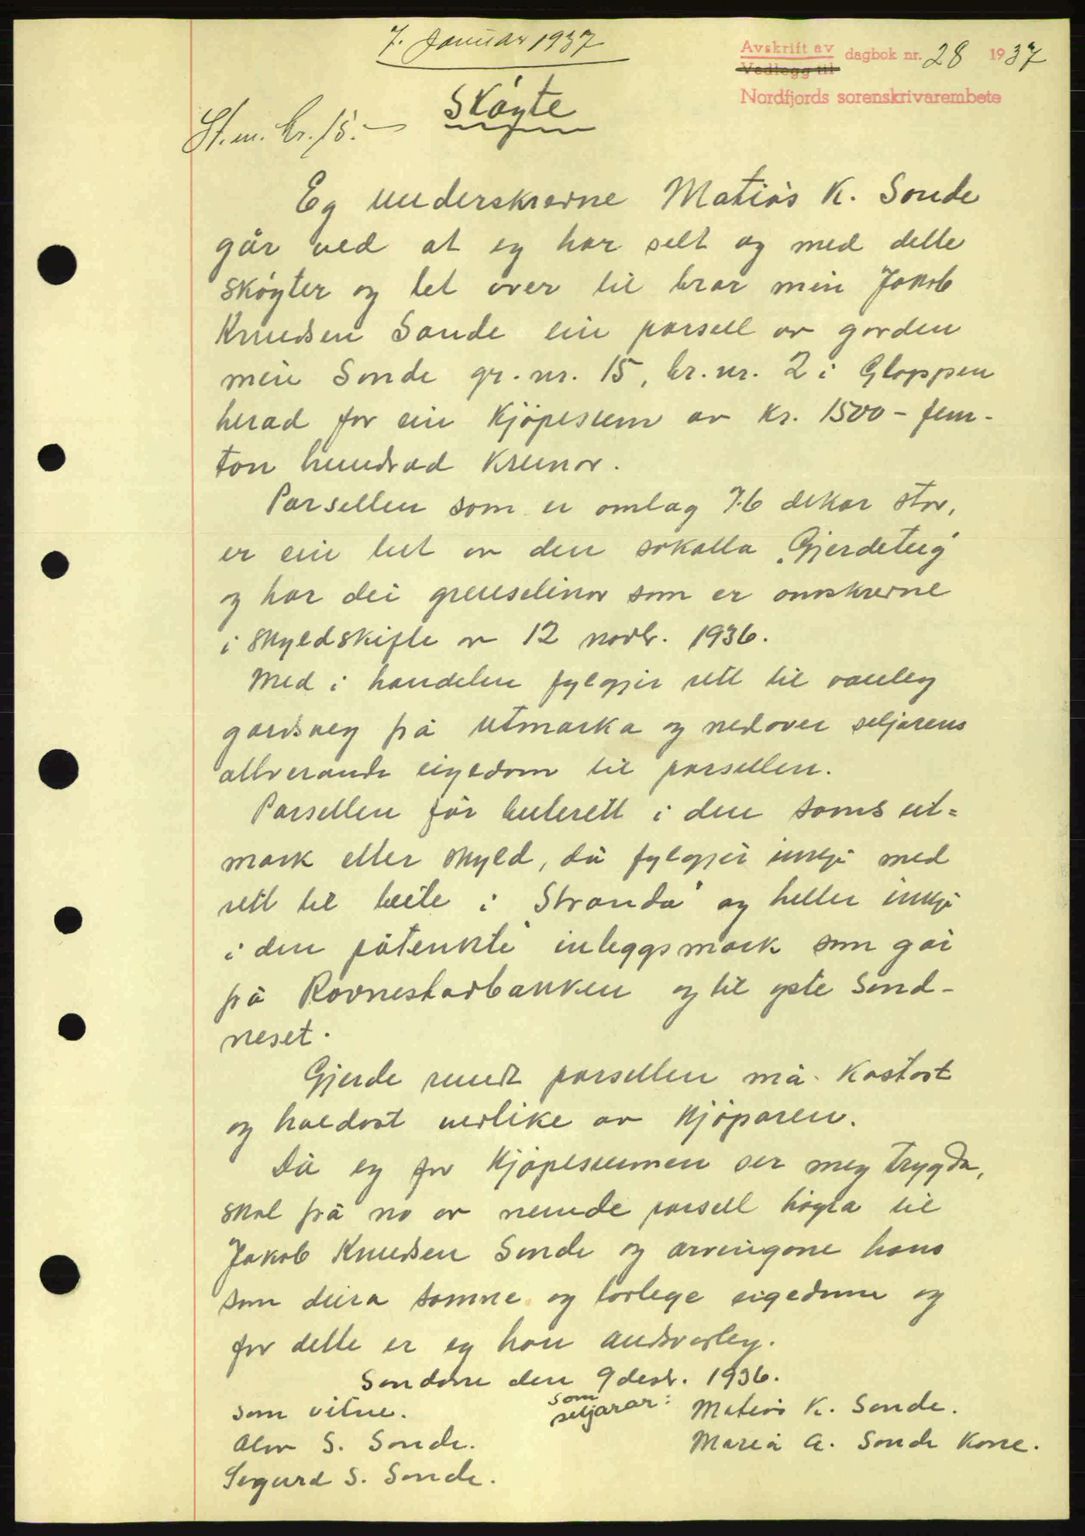 7. Januar 1937
Avskrift av
Vedlegg til
dagbok nr. 28 1937
Nordfjords sorenskrivarembete
Skøyte
St.m. kr. 15.-
Eg underskrevne Matias K. Sande
går ved at eg har selt og med dette
skøyter og let over til bror min Jakob
Knudsen Sande ein parsell av garden
min Sande gr.nr. 15, br.nr. 2 i Gloppen
herad for ein kjøpesum av kr. 1500 - fem-
ton hundrad krunor.
Parsellen som er omlag 7.6 dekar stor,
er ein lut av den sokalla "Gjerdeteig"
og har dei grenselinor som er omskrevne
i skyldskifte av 12 novbr. 1936.
Med i handelen fylgjer rett til vanleg
gardsveg frå utmarka og nedover seljarens
attverande eigedom til parsellen.
Parsellen får beiterett i den sams ut=
mark etter skyld, då fylgjer inkje med
rett til beite i "Stranda" og heller inkje
i den påtenkte inleggsmark som går
frå Ravnestadbakken og til yste Sand-
neset.
Gjerde rundt parsellen må kostast
og haldast vedlike av kjøparen.
Då eg for kjøpesummen ser meg trygda,
skal frå no av nemde parsell høyra til
Jakob Knudsen Sande og arvingane hans
som deira sanne og lovlege eigedom og
for dette er eg han andsvarleg.
Sandane den 9 desbr. 1936.
som vitne.
som seljarar:
Matias K. Sande.
Alv S. Sande.
Maria A. Sande kone.
Sigurd S. Sande.